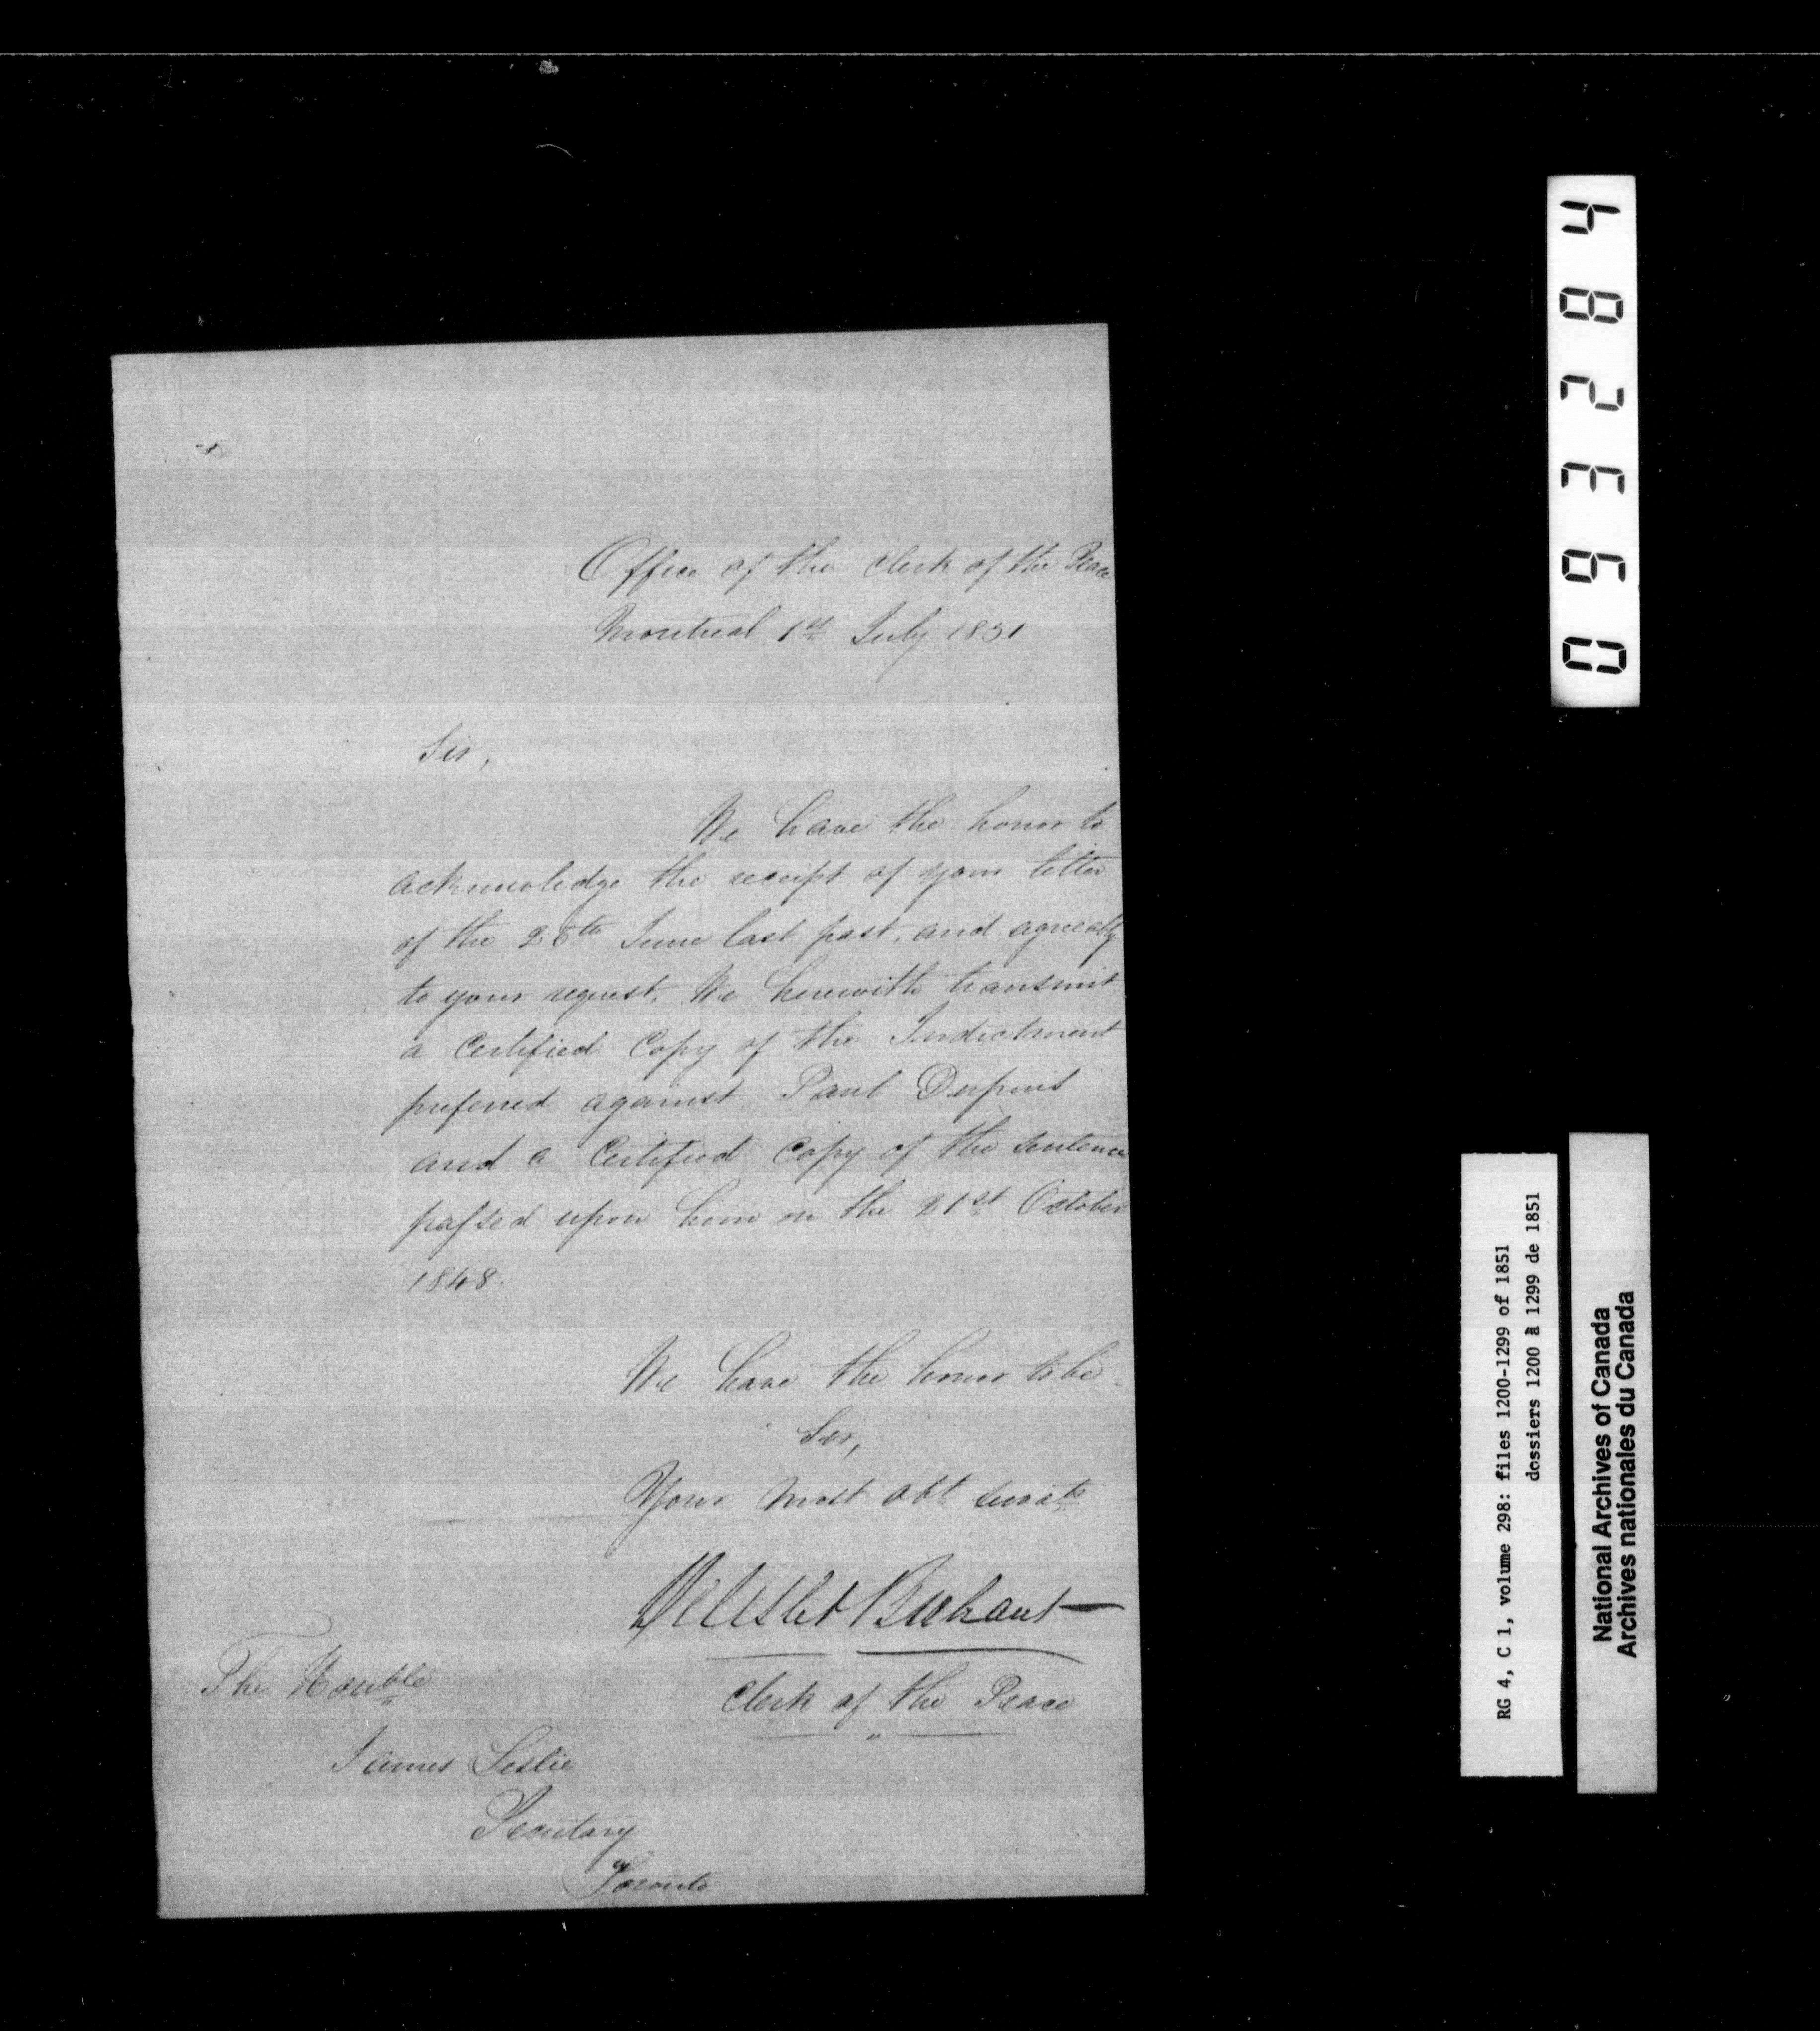 Office of the Clerk of the Peace
Montreal 1st July 1851
Sir,
We have the honor to
acknowledge the receipt of your letter
of the 28th June last past, and agreeably
to your request, We herewith transmit
a Certified Copy of the Indictment
preferred against Paul
and a Certified Copy of the sentence
passed upon him on the 21st October
1848.
We have the honor to be
Sir,
Your most obt servts
Delisle & Brehaut
Clerk of the Peace
The Honble
James Leslie
Secretary
Toronto
093284
RG 4, C 1, volume 298: files 1200-1299 of 1851
dossiers 1200 à 1299 de 1851
National Archives of Canada
Archives nationales du Canada